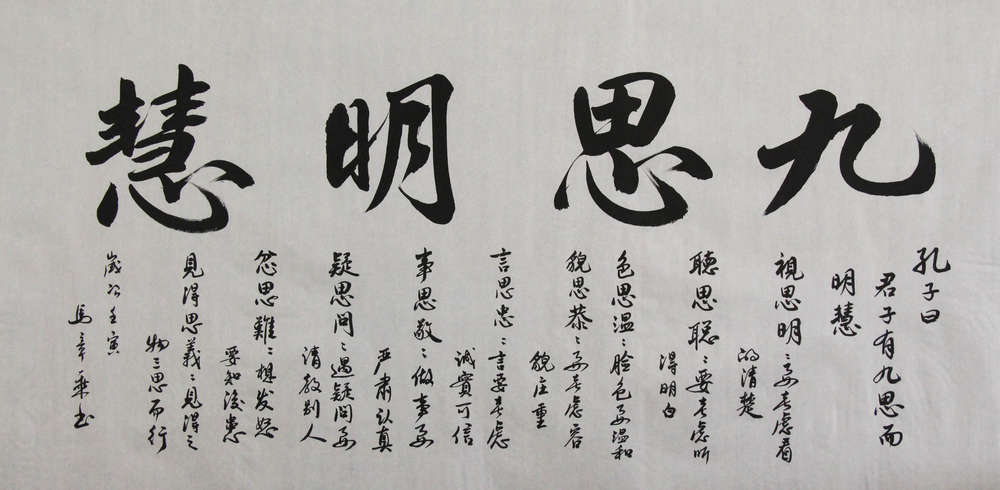 九思明慧
孔子曰
君子有九思而
明慧
視思明：要考慮看
的清楚
聽思聪：要考慮听
得明白
色思温：脸色要温和
貌思恭：要考慮容
貌庄重
言思忠：言要考慮
誠實可信
事思敬：做事要
严肃认真
疑思问：遇疑问要
请教别人
忿思難：想发怒
要知後患
見得思義：見得之
物三思而行
歲次壬寅
馬章乘书